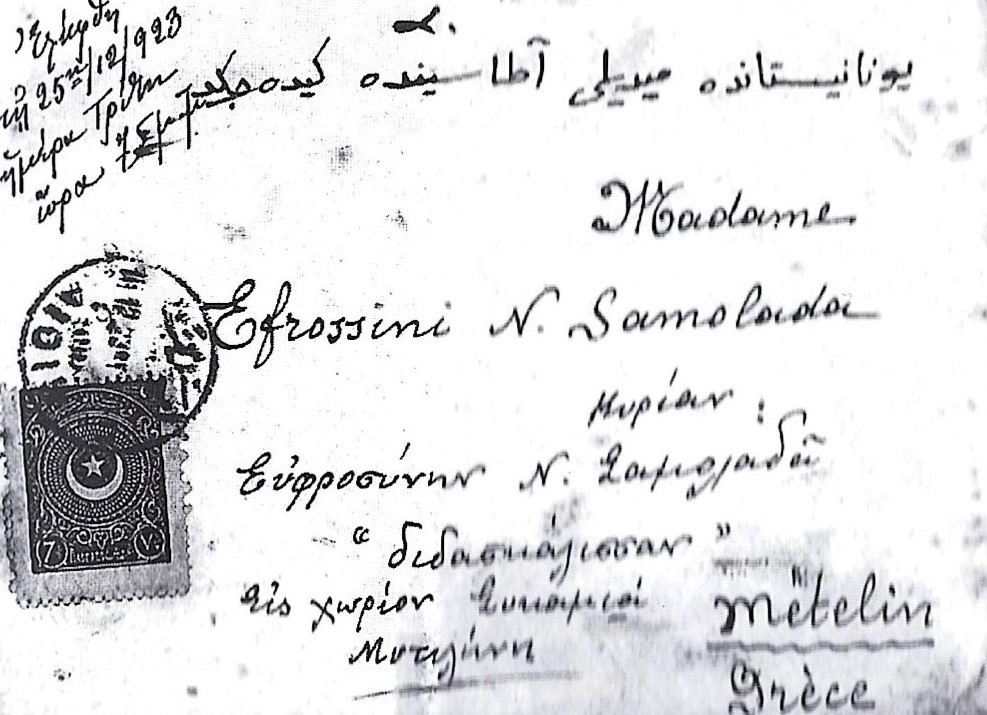 Ἐλήφθη
τῇ 25ῃ/12/923
ἡμέρα Τρίτη
ὥρα 7
يونانيستانده ميديللى آطا سينده كيده جكدر
Madame
Efrossini N. Samolada
Κυρίαν :
Εὐφροσύνην Ν. Σαμολαδᾶ
“ διδασκάλισσαν ”
Εἰς χωρίον Συκαμιά
Μυτιλήνη
Métélin
Grèce
7 ٧